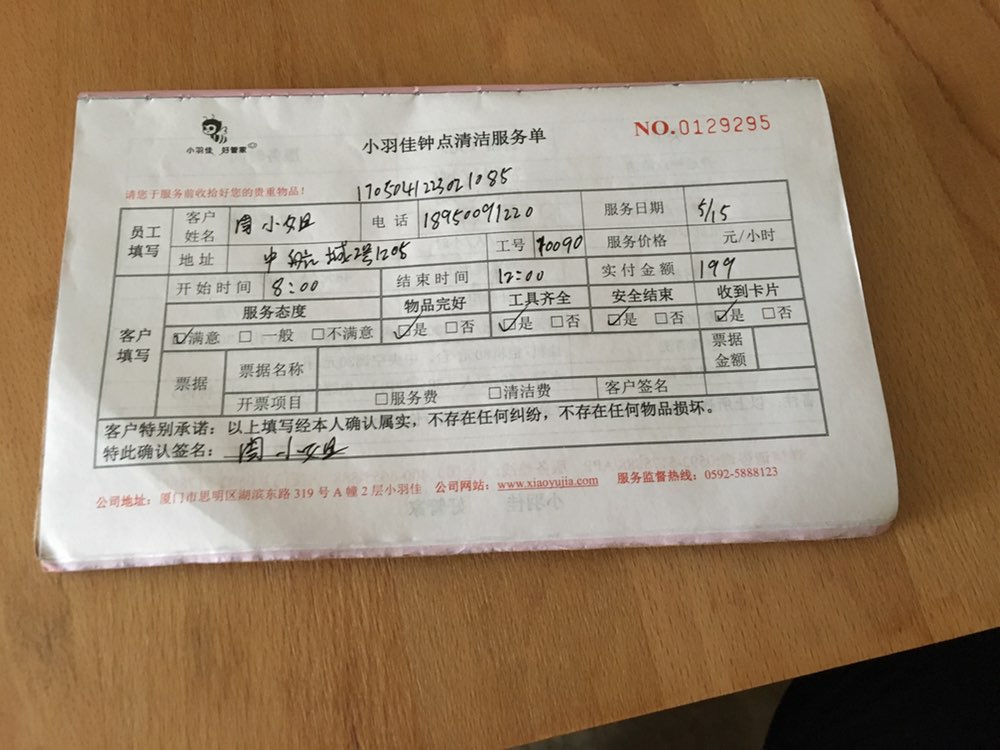 小羽佳 好管家
小羽佳钟点清洁服务单
NO.0129295
请您于服务前收拾好您的贵重物品！
1705041223021085
员工填写 客户姓名 周小姐 电话 18950091220 服务日期 5/15
地址 中航城2号1205 工号 10090 服务价格 元/小时
客户填写 开始时间 8:00 结束时间 12:00 实付金额 199
服务态度 物品完好 工具齐全 安全结束 收到卡片
☑满意 □一般 □不满意 ☑是 □否 ☑是 □否 ☑是 □否 ☑是 □否
票据 票据名称 票据金额
开票项目 □服务费 □清洁费 客户签名
客户特别承诺：以上填写经本人确认属实，不存在任何纠纷，不存在任何物品损坏。
特此确认签名： 周小姐
公司地址：厦门市思明区湖滨东路 319 号 A 幢 2 层小羽佳 公司网站：www.xiaoyujia.com 服务监督热线：0592-5888123